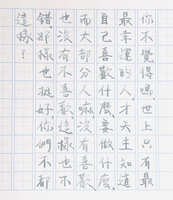 你不覺得嗎,世上只有最
最幸運的人,才天生知道
自己喜歡什麼,要做什麼,
而大部分人嘛,沒有喜歡
也沒有不喜歡,這樣也不
錯那樣也挺好,你們不都
這樣?